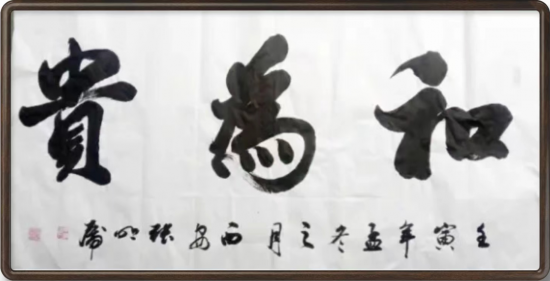 和為貴
壬寅年孟冬之月西安張明席